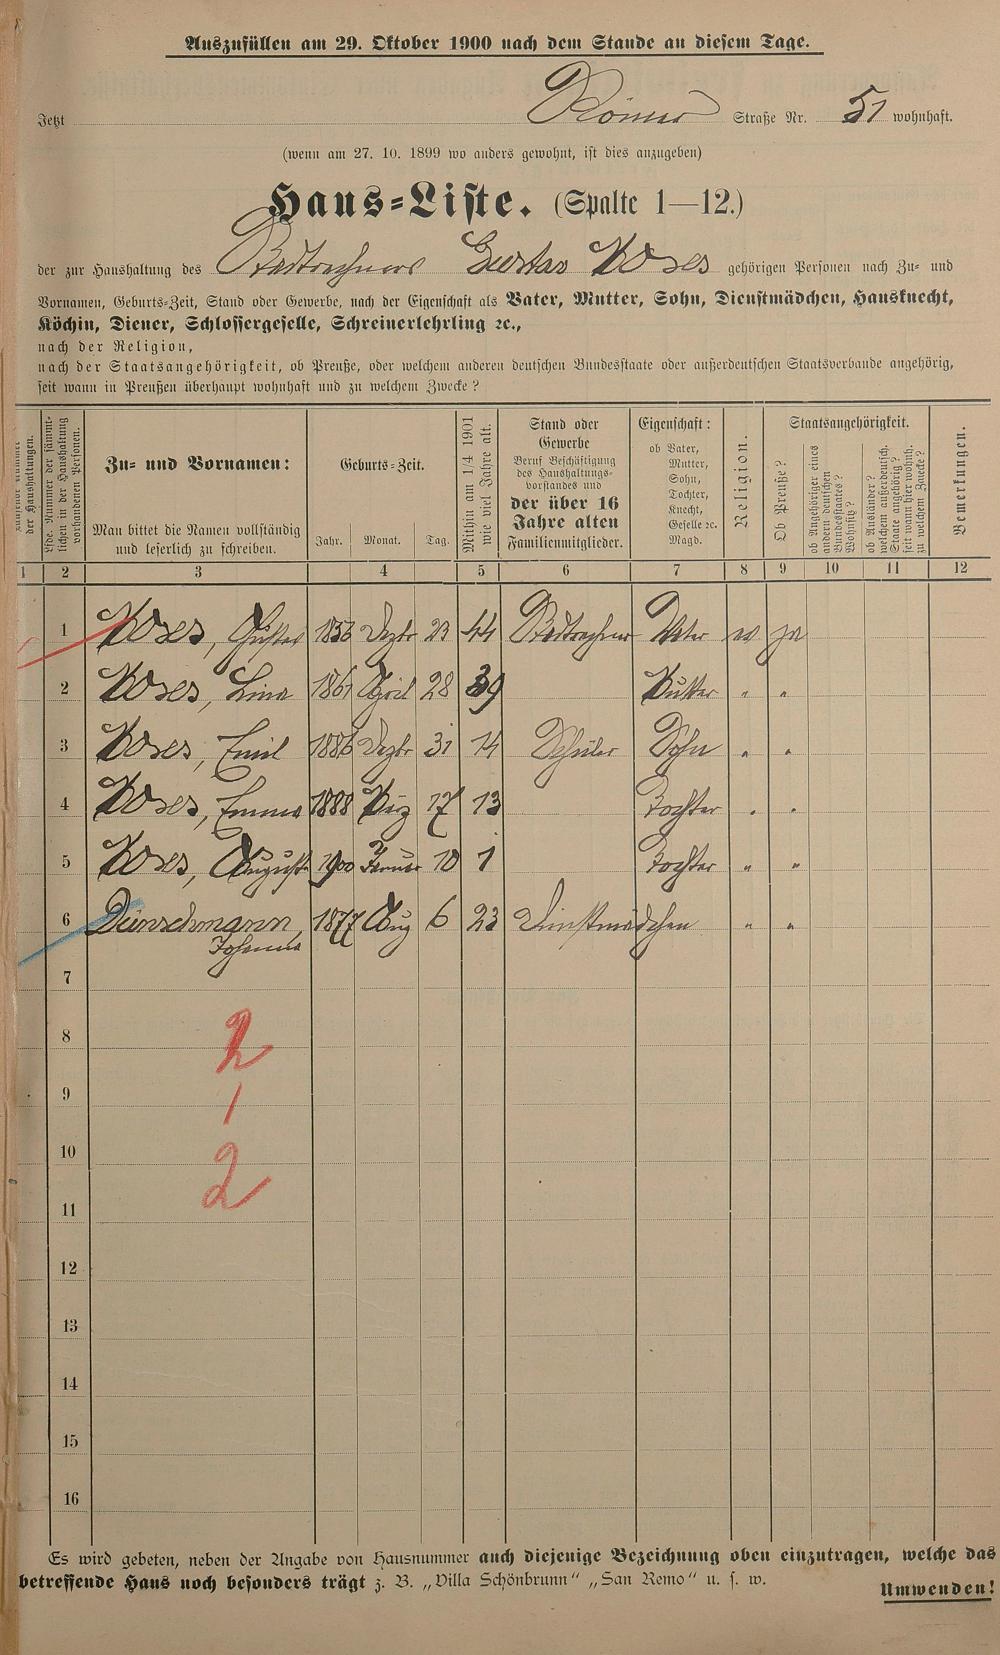 Auszufüllen am 29. Oktober 1900 nach dem Stande an diesem Tage.
Jetzt Römer Straße Nr. 51 wohnhaft.
(wenn am 27. 10. 1899 wo anders gewohnt, ist dies anzugeben)
Haus-Liste. (Spalte 1—12.)
der zur Haushaltung des Stadtrechners Gustav Moses gehörigen Personen nach Zu- und
Vornamen, Geburts-Zeit, Stand oder Gewerbe, nach der Eigenschaft als Vater, Mutter, Sohn, Dienstmädchen, Hausknecht,
Köchin, Diener, Schlossergeselle, Schreinerlehrling ꝛc.,
nach der Religion,
nach der Staatsangehörigkeit, ob Preuße, oder welchem anderen deutschen Bundesstaate oder außerdeutschen Staatsverbande angehörig,
seit wann in Preußen überhaupt wohnhaft und zu welchem Zwecke?
der Haushaltungen.
Lfde. Nummer der sämmtlichen in der Haushaltung vorhandenen Personen.
Zu- und Vornamen:
Man bittet die Namen vollständig
und leserlich zu schreiben.
Geburts-Zeit.
Jahr. Monat. Tag.
Mithin am 1/4 1901
wie viel Jahre alt.
Stand oder
Gewerbe
Beruf Beschäftigung
des Haushaltungs-
vorstandes und
der über 16
Jahre alten
Familienmitglieder.
Eigenschaft:
ob Vater,
Mutter,
Sohn,
Tochter,
Knecht,
Geselle ꝛc.
Magd.
Religion.
Staatsangehörigkeit.
Ob Preuße?
ob Angehöriger eines
andern deutschen
Bundesstaates?
Wohnsitz?
ob Ausländer?
welchem außerdeutsch.
Staate angehörig?
seit wann hier wohnh.
zu welchem Zwecke?
Bemerkungen.
1 2 3 4 5 6 7 8 9 10 11 12
1 Moses, Gustav 1856 Dezbr 23 44 Stadtrechner Vater ev ja
2 Moses, Lina 1861 April 28 39 Mutter " "
3 Moses, Emil 1886 Dezbr 31 14 Schüler Sohn " "
4 Moses, Emma 1888 März 17 13 Tochter " "
5 Moses, Auguste 1900 Januar 10 1 Tochter " "
6 Dünschmann, 1877 Aug 6 23 Dienstmädchen " "
Johanna
7
8 2
9 1
10 2
11
12
13
14
15
16
Es wird gebeten, neben der Angabe von Hausnummer auch diejenige Bezeichnung oben einzutragen, welche das
betreffende Haus noch besonders trägt z. B. „Villa Schönbrunn“ „San Remo“ u. s. w.
Umwenden!